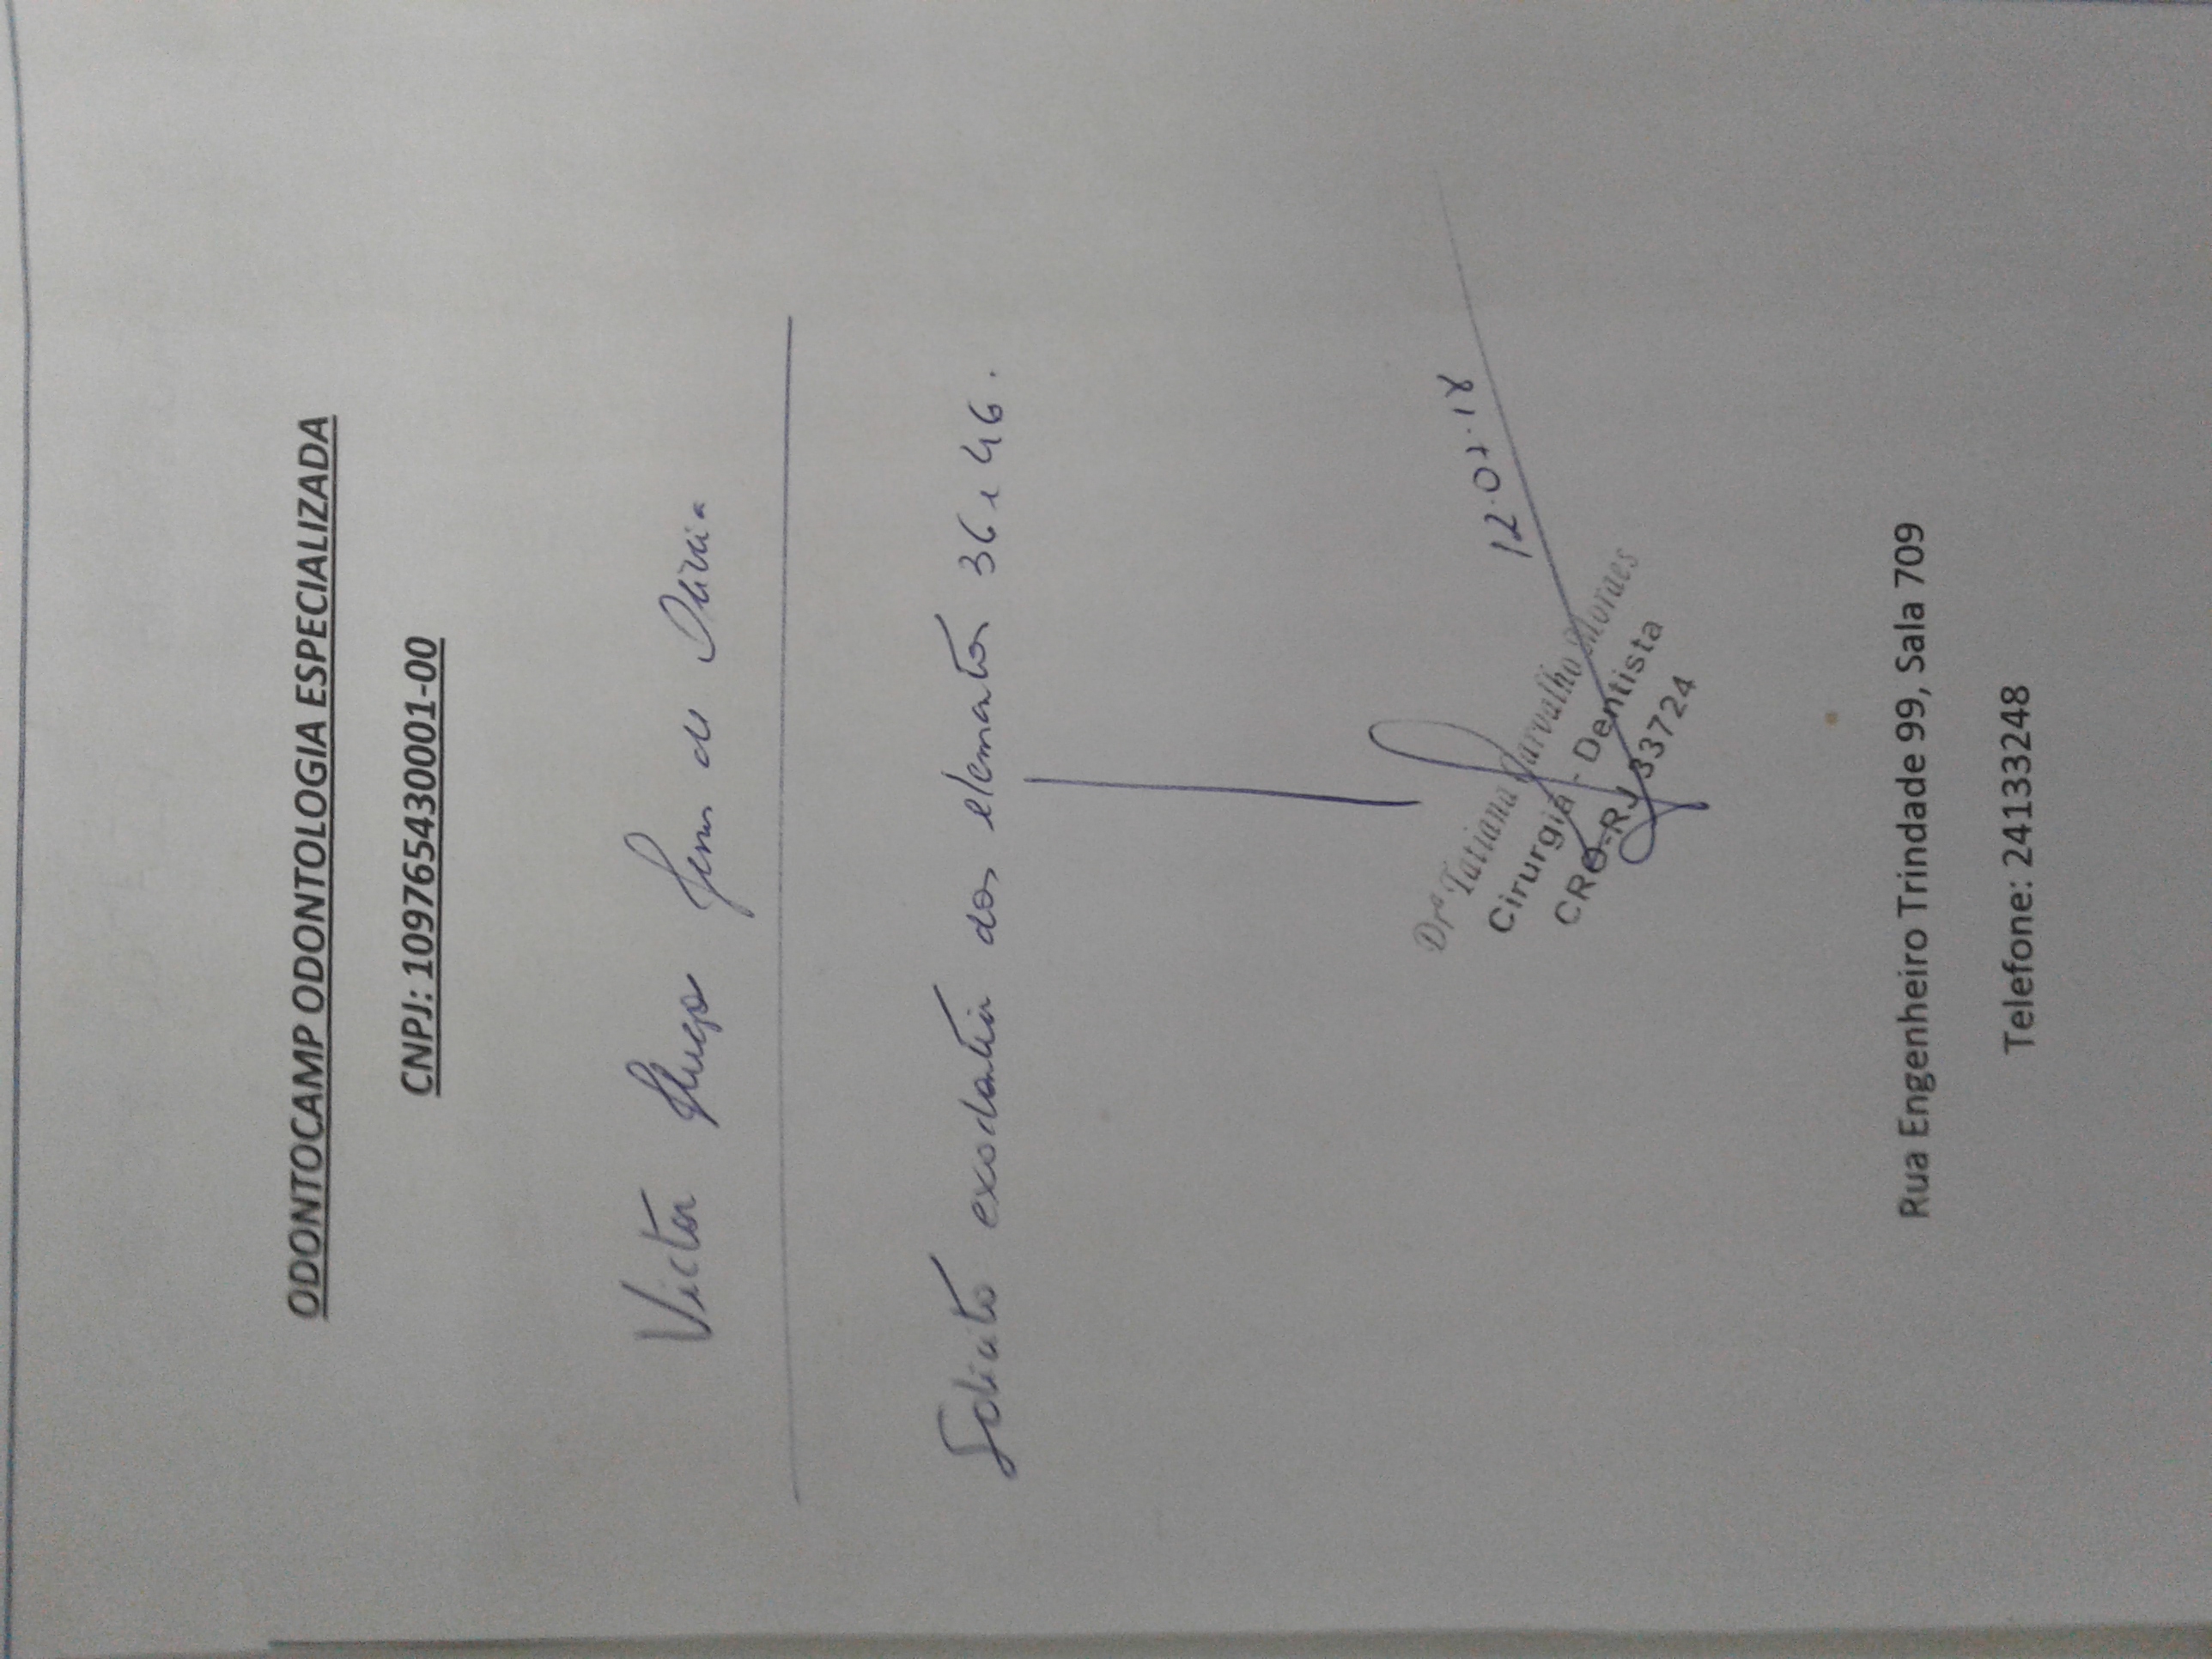 ODONTOCAMP ODONTOLOGIA ESPECIALIZADA
CNPJ: 109765430001-00
Victor Hugo de Oliveira
Solicito exodontia dos elementos 36 e 46.
12.07.18
Drª Tatiana Carvalho Moraes
Cirurgiã - Dentista
CRO-RJ 33724
Rua Engenheiro Trindade 99, Sala 709
Telefone: 24133248